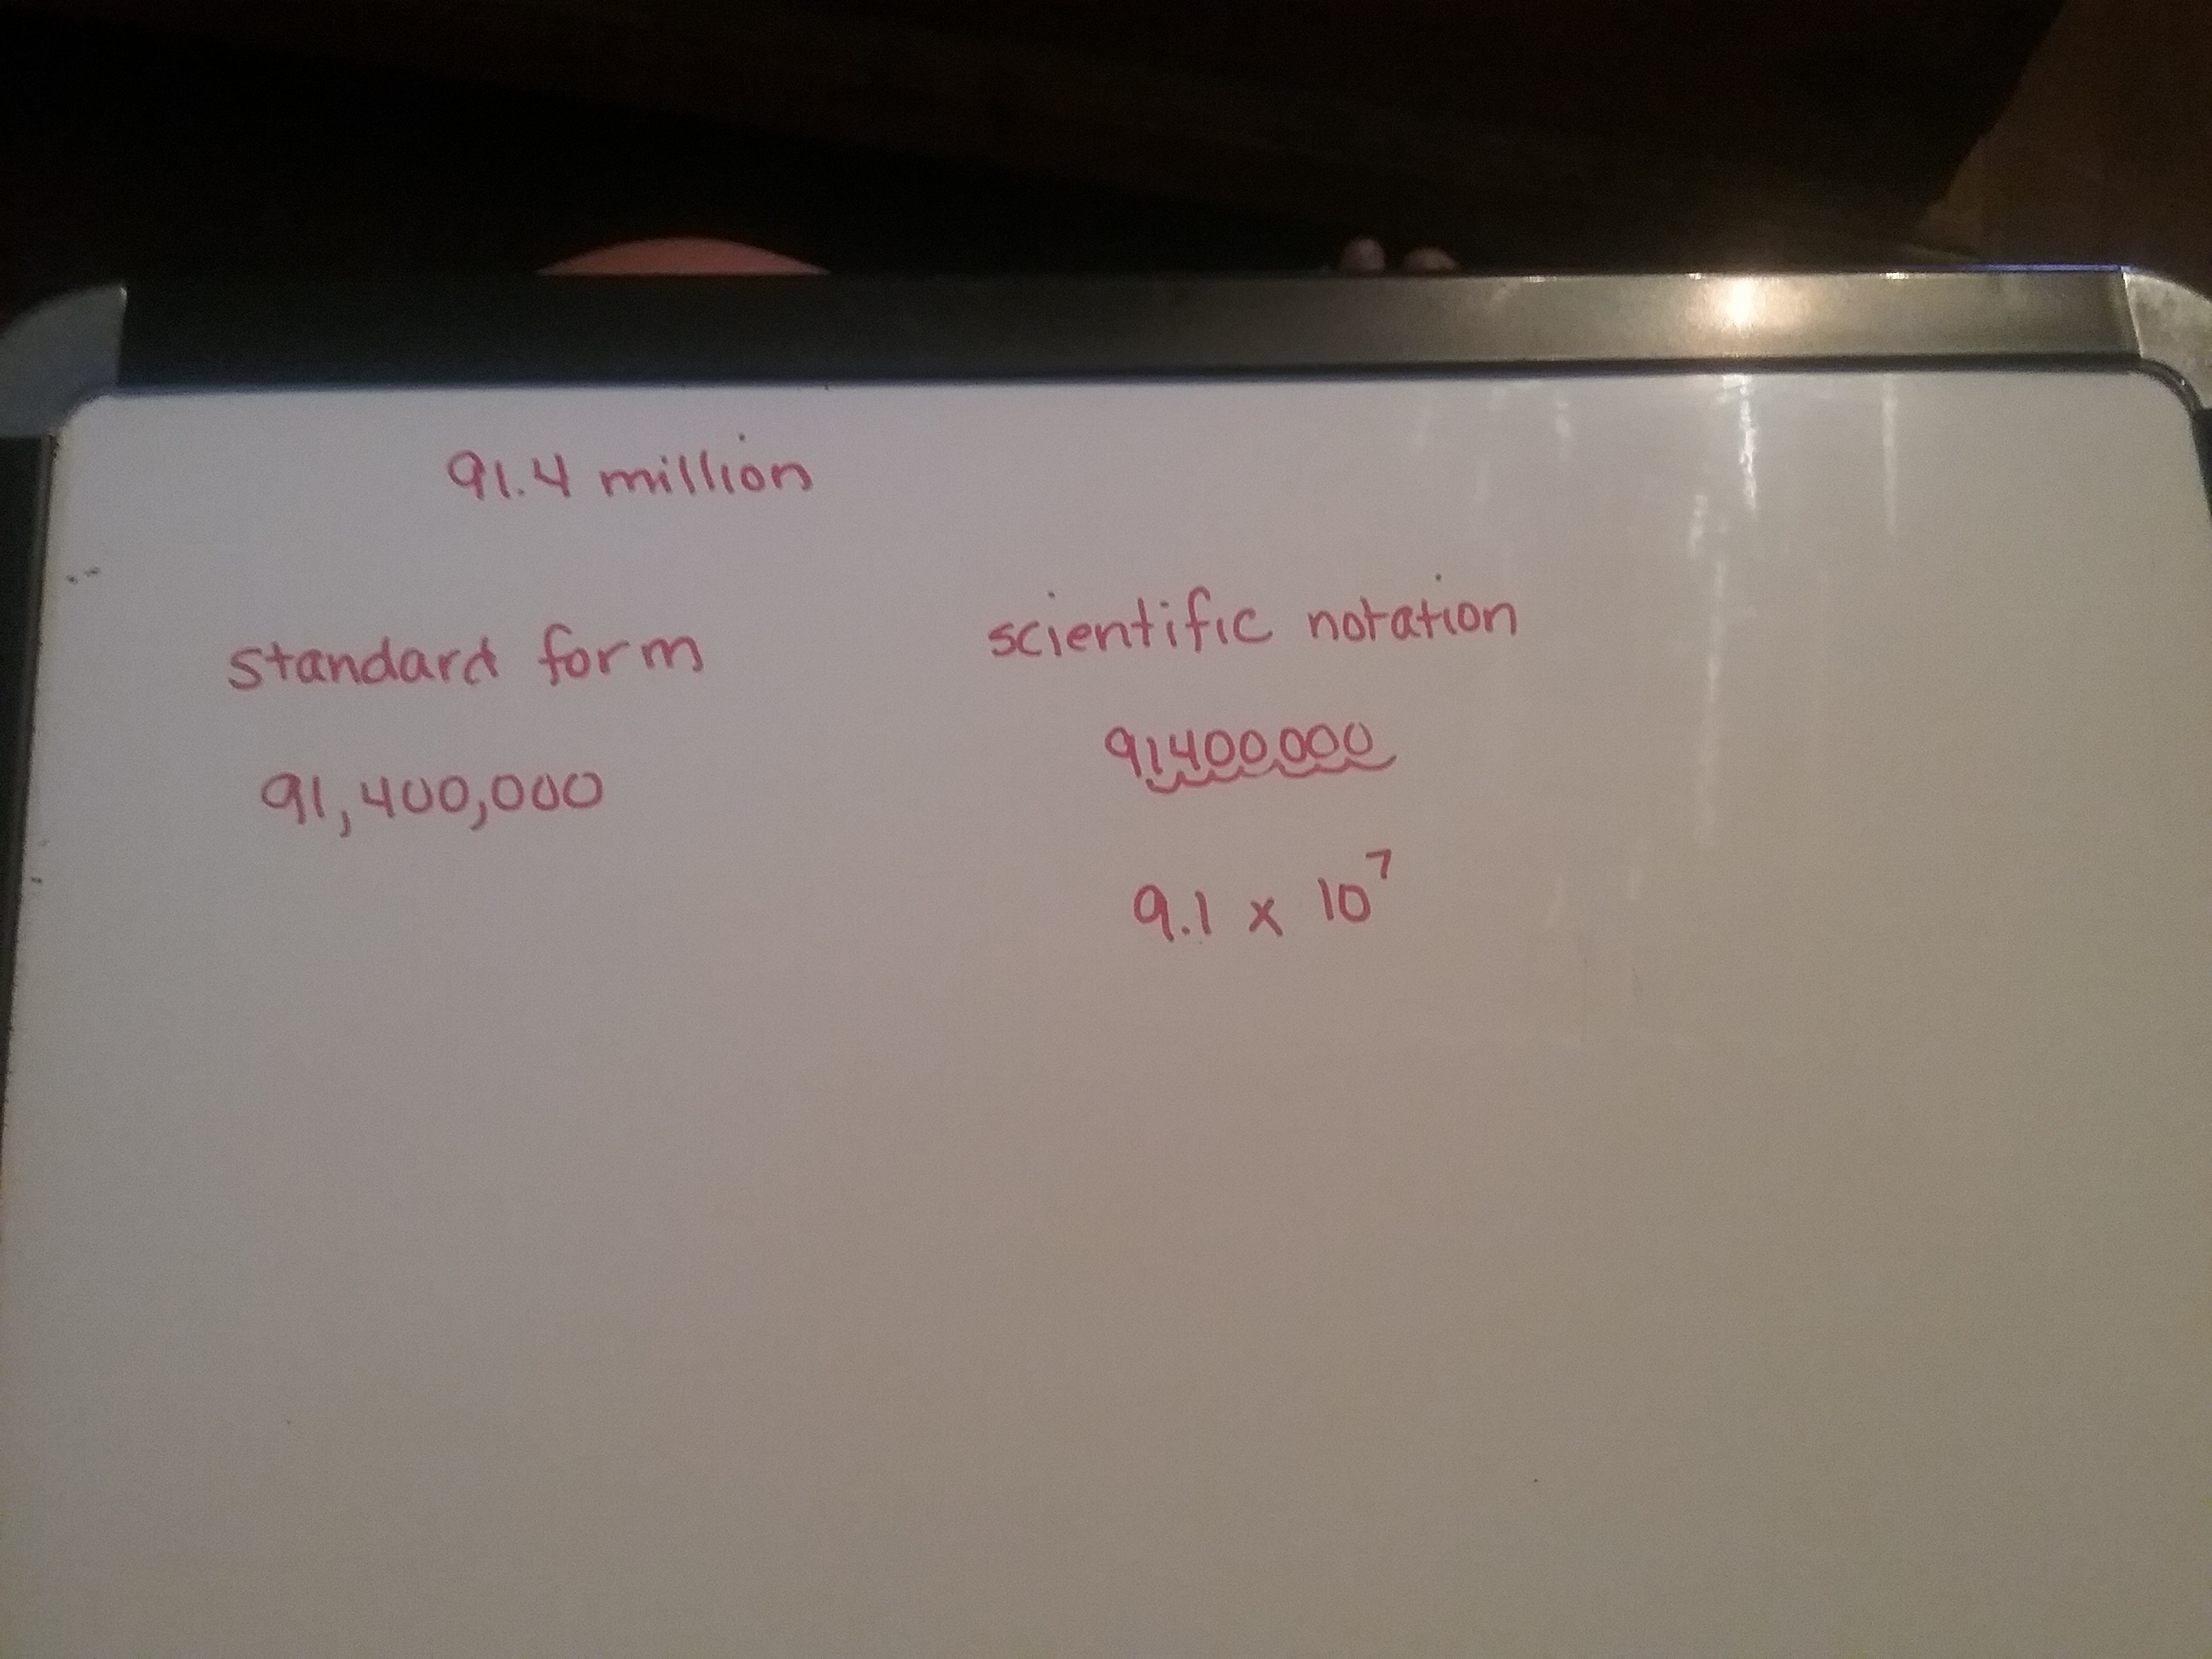 91.4 million
standard form
91,400,000
scientific notation
91400000
9.1 x 10⁷